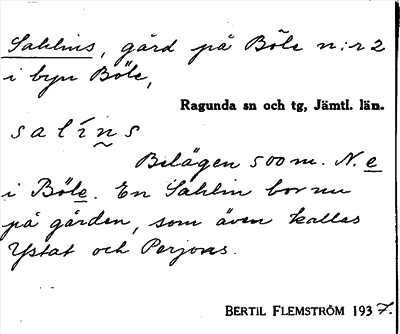 Sahlins, gård på Böle n:r 2
i byn Böle,
Ragunda sn och tg, Jämtl. län.
salíns
Belägen 500 m. N. e
i Böle. En Sahlin bor nu
på gården, som även kallas
Ystat och Perjons.
BERTIL FLEMSTRÖM 1937.